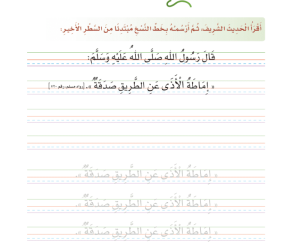 أَقْرَأُ الْحَديثَ الشَّريفَ، ثُمَّ أَرْسُمُهُ بِخَطِّ النَّسْخِ مُبْتَدِئًا مِنَ السَّطْرِ الْأَخيرِ:
قَالَ رَسُولُ اللهِ صَلَّى اللهُ عَلَيْهِ وَسَلَّمَ:
« إِمَاطَةُ الْأَذَى عَنِ الطَّرِيقِ صَدَقَةٌ ».
« إِمَاطَةُ الْأَذَى عَنِ الطَّرِيقِ صَدَقَةٌ ».
« إِمَاطَةُ الْأَذَى عَنِ الطَّرِيقِ صَدَقَةٌ ».
« إِمَاطَةُ الْأَذَى عَنِ الطَّرِيقِ صَدَقَةٌ ».